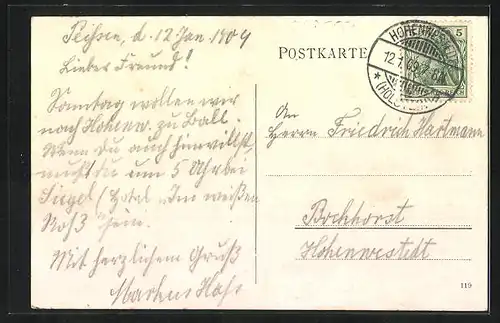 d. 12 Jan 1909
Lieber Freund!
Sonntag wollen wir
nach Hohenw. zu Ball.
Wenn Du auch hinwillst,
mußt du um 5 Uhr bei
Siegel (Hotel "Im weißen
Roß") sein.
Mit herzlichem Gruß
Markus
POSTKARTE
HOHENWESTEDT
12.1.09.
* (HOLSTEIN)
5
An
Herrn Friedrich Hartmann
Bockhorst
Hohenwestedt
119